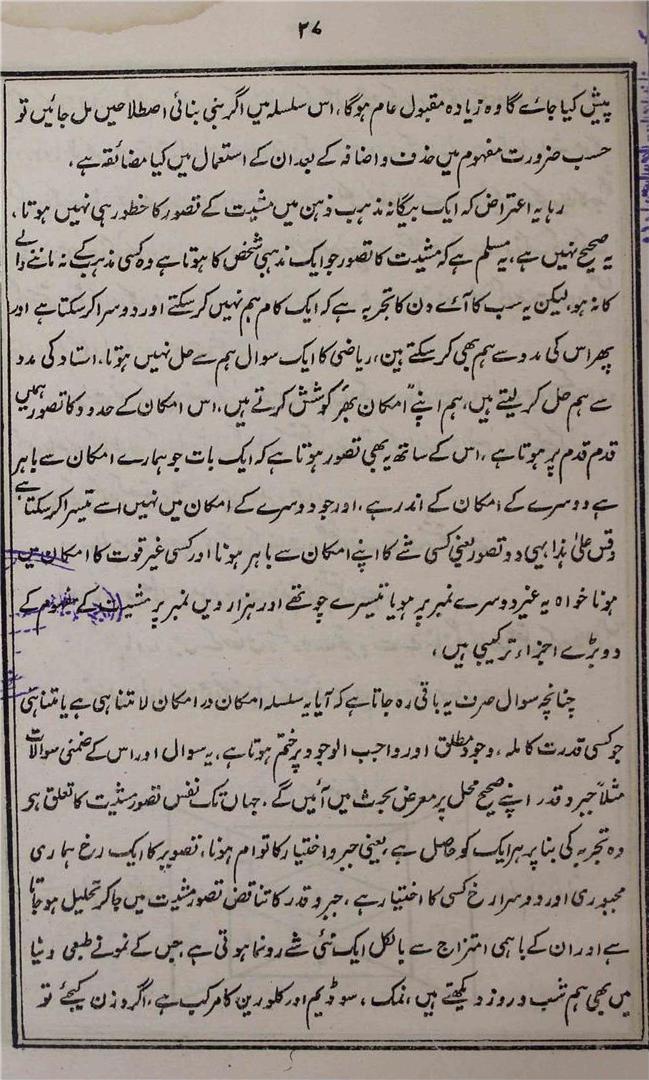 ۲۷
پیش کیا جائے گا وہ زیادہ مقبول عام ہوگا، اس سلسلہ میں اگر بنی بنائی اصطلاحیں مل جائیں تو
حسب ضرورت مفہوم میں حذف و اضافہ کے بعد ان کے استعمال میں کیا مضائقہ ہے،
رہا یہ اعتراض کہ ایک بیگانہ مذہب ذہن میں مشیت کے تصور کا خطور ہی نہیں ہوتا،
یہ صحیح نہیں ہے، یہ مسلم ہے کہ مشیت کا تصور جو ایک مذہبی شخص کا ہوتا ہے وہ کسی مذہب کے نہ ماننے والے
کا نہ ہو، لیکن یہ سب کا آئے دن کا تجربہ ہے کہ ایک کام ہم نہیں کرسکتے اور دوسرا کرسکتا ہے اور
پھر اس کی مدد سے ہم بھی کرسکتے ہین، ریاضی کا ایک سوال ہم سے حل نہیں ہوتا، استاد کی مدد
سے ہم حل کر لیتے ہیں، ہم اپنے "امکان بھر" کوشش کرتے ہیں، اس امکان کے حدود کا تصور ہمیں
قدم قدم پر ہوتا ہے، اس کے ساتھ یہ بھی تصور ہوتا ہے کہ ایک بات جو ہمارے امکان سے باہر
ہے دوسرے کے امکان کے اندر ہے، اور جو دوسرے کے امکان میں نہیں اسے تیسرا کرسکتا ہے
وقس علیٰ ہذا یہی دو تصور یعنی کسی شے کا اپنے امکان سے باہر ہونا اور کسی غیر قوت کا امکان میں
ہونا خواہ یہ غیر دوسرے نمبر پر ہو یا تیسرے چوتھے اور ہزارویں نمبر پر مشیت کے مفہوم کے
دو بڑے اجزاء ترکیبی ہیں،
چنانچہ سوال صرف یہ باقی رہ جاتا ہے کہ آیا یہ سلسلہ امکان در امکان لا متناہی ہے یا متناہی
جو کسی قدرت کاملہ، وجود مطلق اور واجب الوجود پر ختم ہوتا ہے، یہ سوال اور اس کے ضمنی سوالات
مثلاً جبر و قدر اپنے صحیح محل پر معرض بحث میں آئیں گے، جہاں تک نفس تصور مشیت کا تعلق ہے
وہ تجربہ کی بنا پر ہر ایک کو حاصل ہے، یعنی جبر و اختیار کا توام ہونا، تصویر کا ایک رخ ہماری
مجبوری اور دوسرا رخ کسی کا اختیار ہے، جبر و قدر کا تناقض تصور مشیت میں جا کر تحلیل ہو جاتا
ہے اور ان کے باہمی امتزاج سے بالکل ایک نئی شے رونما ہوتی ہے، جس کے نمونے طبعی دنیا
میں بھی ہم شب و روز دیکھتے ہیں، نمک، سوڈیم اور کلورین کا مرکب ہے، اگر وزن کیجئے تو